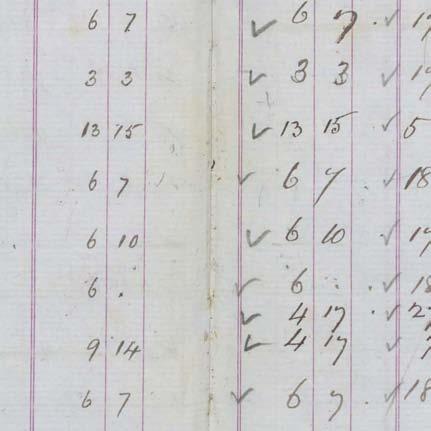 6 7 ✓ 6 7 . ✓ 17
3 3 ✓ 3 3 ✓ 17
13 15 ✓ 13 15 ✓ 5
6 7 ✓ 6 7 ✓ 18
6 10 ✓ 6 10 ✓ 17
6 . ✓ 6 . . ✓ 18
✓ 4 17 . ✓ 27
9 14 ✓ 4 17 ✓
6 7 ✓ 6 7 . ✓ 18